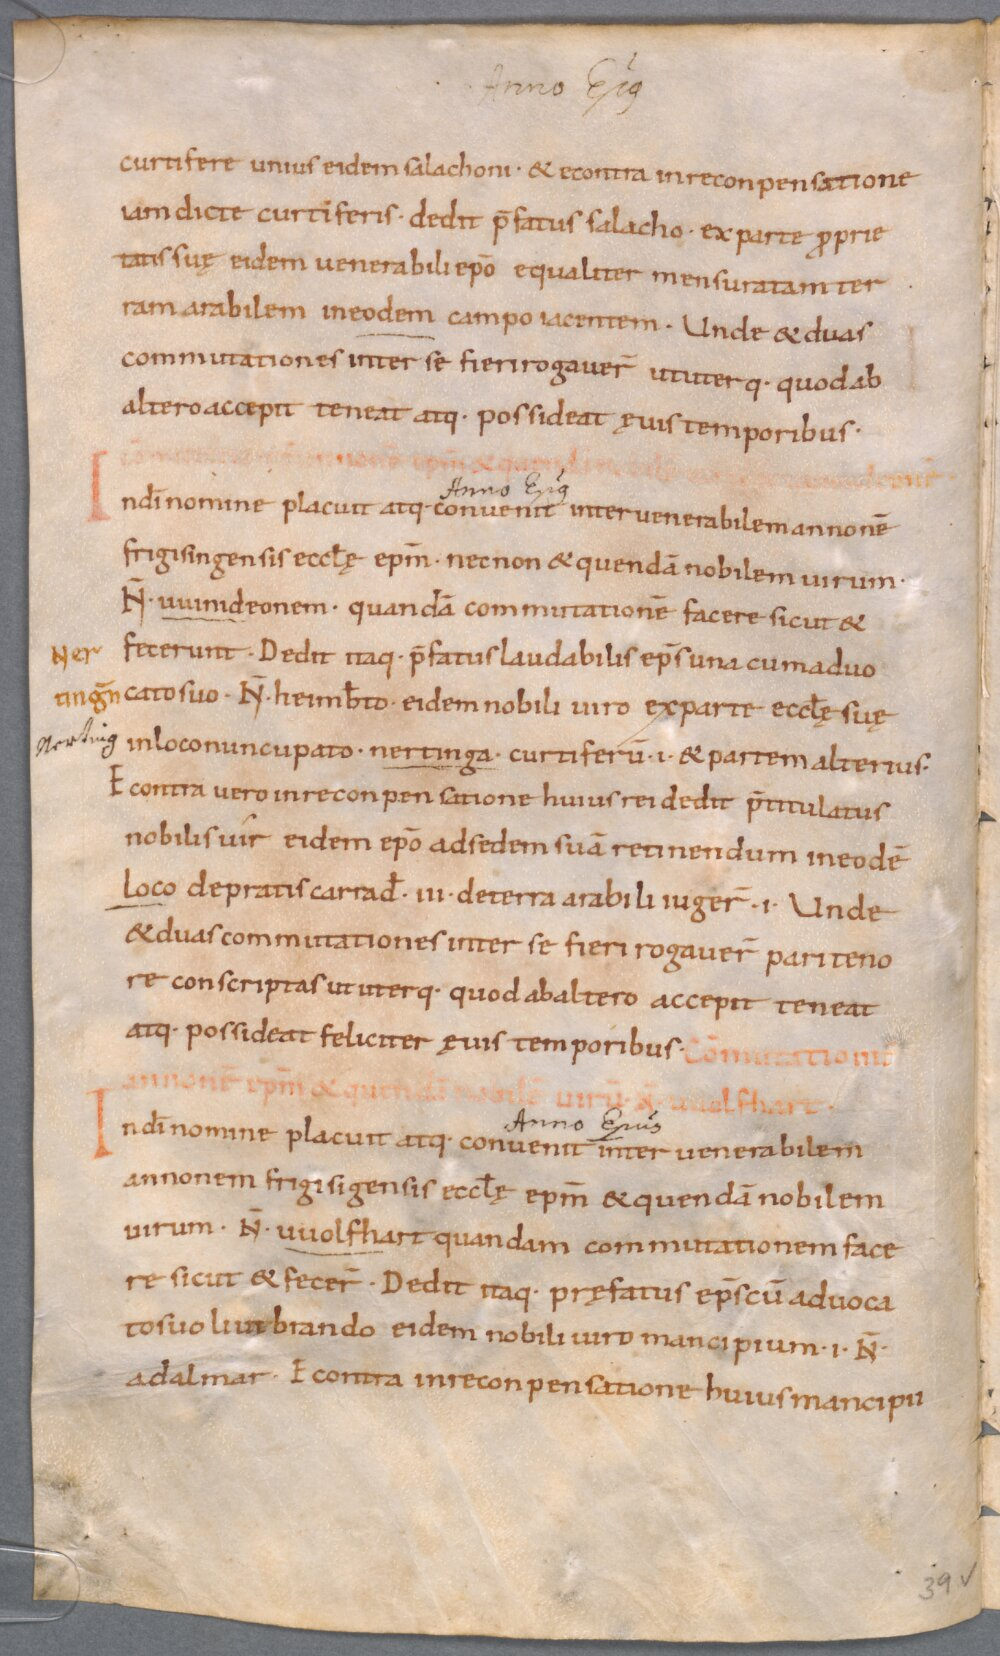 Anno Ejꝰ
curtifere unius eidem salachoni · & econtra inreconpensatione
iam dicte curtiferis · dedit p̄fatus salacho · ex parte ꝓprie
tatis suę eidem uenerabili ep̄o equaliter mensuratam ter
ram arabilem ineodem campo iacentem · Unde & duas
commutationes inter se fieri rogauer̄ ut uterq · quod ab
altero accepit teneat atq · possideat ęuis temporibus ·
annonē ep̄m & quendā
Anno Ejꝰ
Indī nomine placuit atq · conuenit inter uenerabilem annonē
frigisingensis eccl̄ę ep̄m · necnon & quendā nobilem uirum ·
N̄ · uuinideonem · quandā commutationē facere sicut &
fecerunt · Dedit itaq · p̄fatus laudabilis ep̄s una cum aduo
Ner
tingn̄
cato suo · N̄ · heimb̄to · eidem nobili uiro ex parte eccl̄ę suę
Nerting
in loco nuncupato · nertinga · curtiferū · i · & partem alterius ·
E contra uero inreconpensatione huius rei dedit p̄titulatus
nobilis uir eidem ep̄o ad sedem suā retinendum ineodē
loco de pratis carrad̄ · iii · de terra arabili iuger̄ · i · Unde
& duas commutationes inter se fieri rogauer̄ pari teno
re conscriptas ut uterq · quod ab altero accepit teneat
atq · possideat feliciter ęuis temporibus · Cōmutatio int̄
annonē ep̄m & quendā nobilē uirū · N̄ · uuolfhart ·
Anno Ejus
Indī nomine placuit atq · conuenit inter uenerabilem
annonem frigisigensis eccl̄ę ep̄m & quendā nobilem
uirum · N̄ · uuolfhart quandam commutationem face
re sicut & fecer̄ · Dedit itaq · pręfatus ep̄s cū aduoca
to suo liutbrando eidem nobili uiro mancipium · i · N̄ ·
adalmar · E contra inreconpensatione huius mancipii
39v